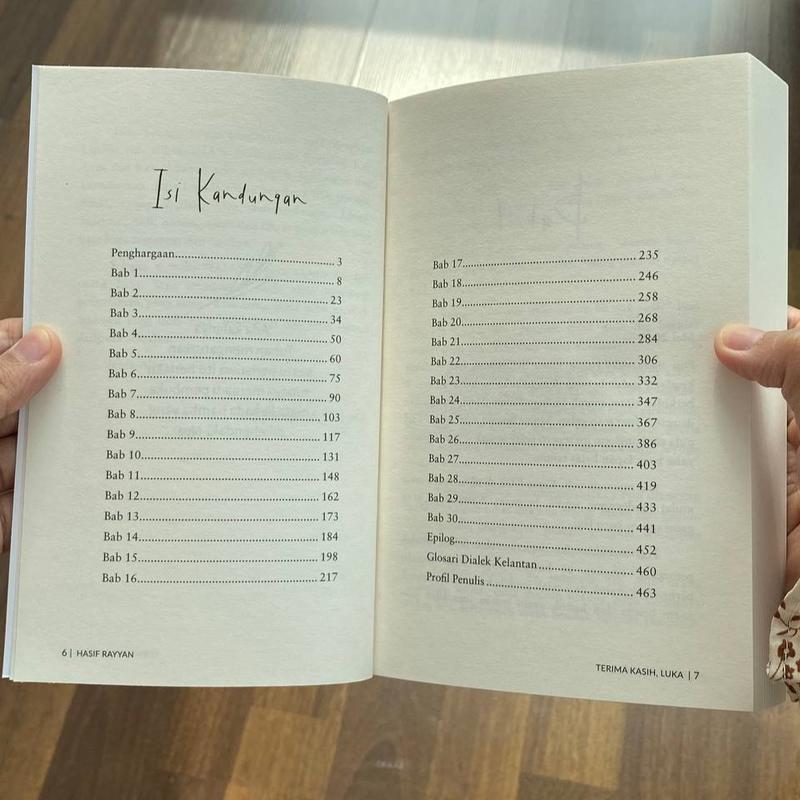 Isi Kandungan
Penghargaan........................................................ 3
Bab 1........................................................ 8
Bab 2........................................................ 23
Bab 3........................................................ 34
Bab 4........................................................ 50
Bab 5........................................................ 60
Bab 6........................................................ 75
Bab 7........................................................ 90
Bab 8........................................................ 103
Bab 9........................................................ 117
Bab 10........................................................ 131
Bab 11........................................................ 148
Bab 12........................................................ 162
Bab 13........................................................ 173
Bab 14........................................................ 184
Bab 15........................................................ 198
Bab 16........................................................ 217
6 | HASIF RAYYAN
Bab 17........................................................ 235
Bab 18........................................................ 246
Bab 19........................................................ 258
Bab 20........................................................ 268
Bab 21........................................................ 284
Bab 22........................................................ 306
Bab 23........................................................ 332
Bab 24........................................................ 347
Bab 25........................................................ 367
Bab 26........................................................ 386
Bab 27........................................................ 403
Bab 28........................................................ 419
Bab 29........................................................ 433
Bab 30........................................................ 441
Epilog........................................................ 452
Glosari Dialek Kelantan.............................. 460
Profil Penulis.............................................. 463
TERIMA KASIH, LUKA | 7